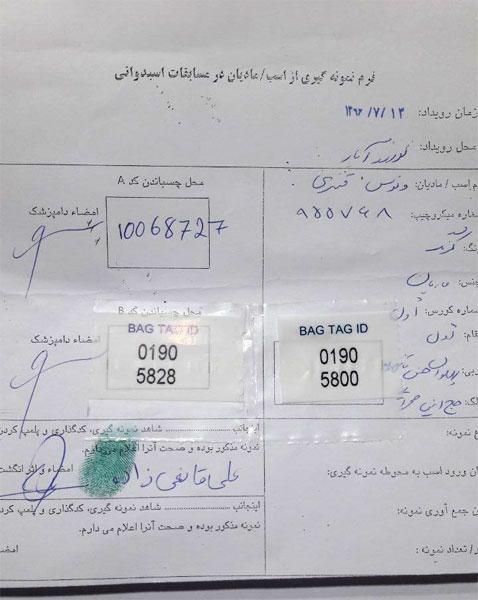 فرم نمونه گیری از اسب/مادیان در مسابقات اسبدوانی
زمان رویداد: ۱۳۹۶/۷/۱۳
محل رویداد:
م اسب / مادیان: ونوس قنبری
ماره میکروچیپ: ۹۸۵۷۴۸
نگ: کرند
نس: مادیان
ماره کورس: اول
قام: اول
بی:
لک:
ع نمونه:
ان ورود اسب به محوطه نمونه گیری:
ن جمع آوری نمونه:
ر/ تعداد نمونه:
محل چسباندن کد A
امضاء دامپزشک
10068727
محل چسباندن کد B
امضاء دامپزشک
BAG TAG ID
0190
5828
BAG TAG ID
0190
5800
اینجانب ........ شاهد نمونه گیری، کدگذاری و پلمپ کردن
نمونه مذکور بوده و صحت آنرا اعلام می‌دارم.
امضاء و اثر انگشت
علی قانعی زاده
اینجانب ........ شاهد نمونه گیری، کدگذاری و پلمپ کردن
نمونه مذکور بوده و صحت آنرا اعلام می دارم.
امضا